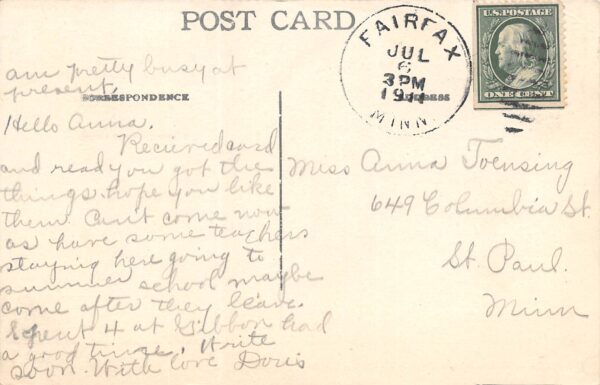 POST CARD
FAIRFAX
JUL
6
3PM
1911
MINN
U.S. POSTAGE
ONE CENT
am pretty busy at
present.
CORRESPONDENCE
ADDRESS
Hello Anna,
Recieved card
and ready you got the
things. hope you like
them Cant come now
as have some teachers
staying here going to
summer school maybe
come after they leave.
Spent 4 at Gibbon had
a good time. Write
soon. With love Doris
Miss Anna Toensing
649 Columbia St.
St. Paul.
Minn